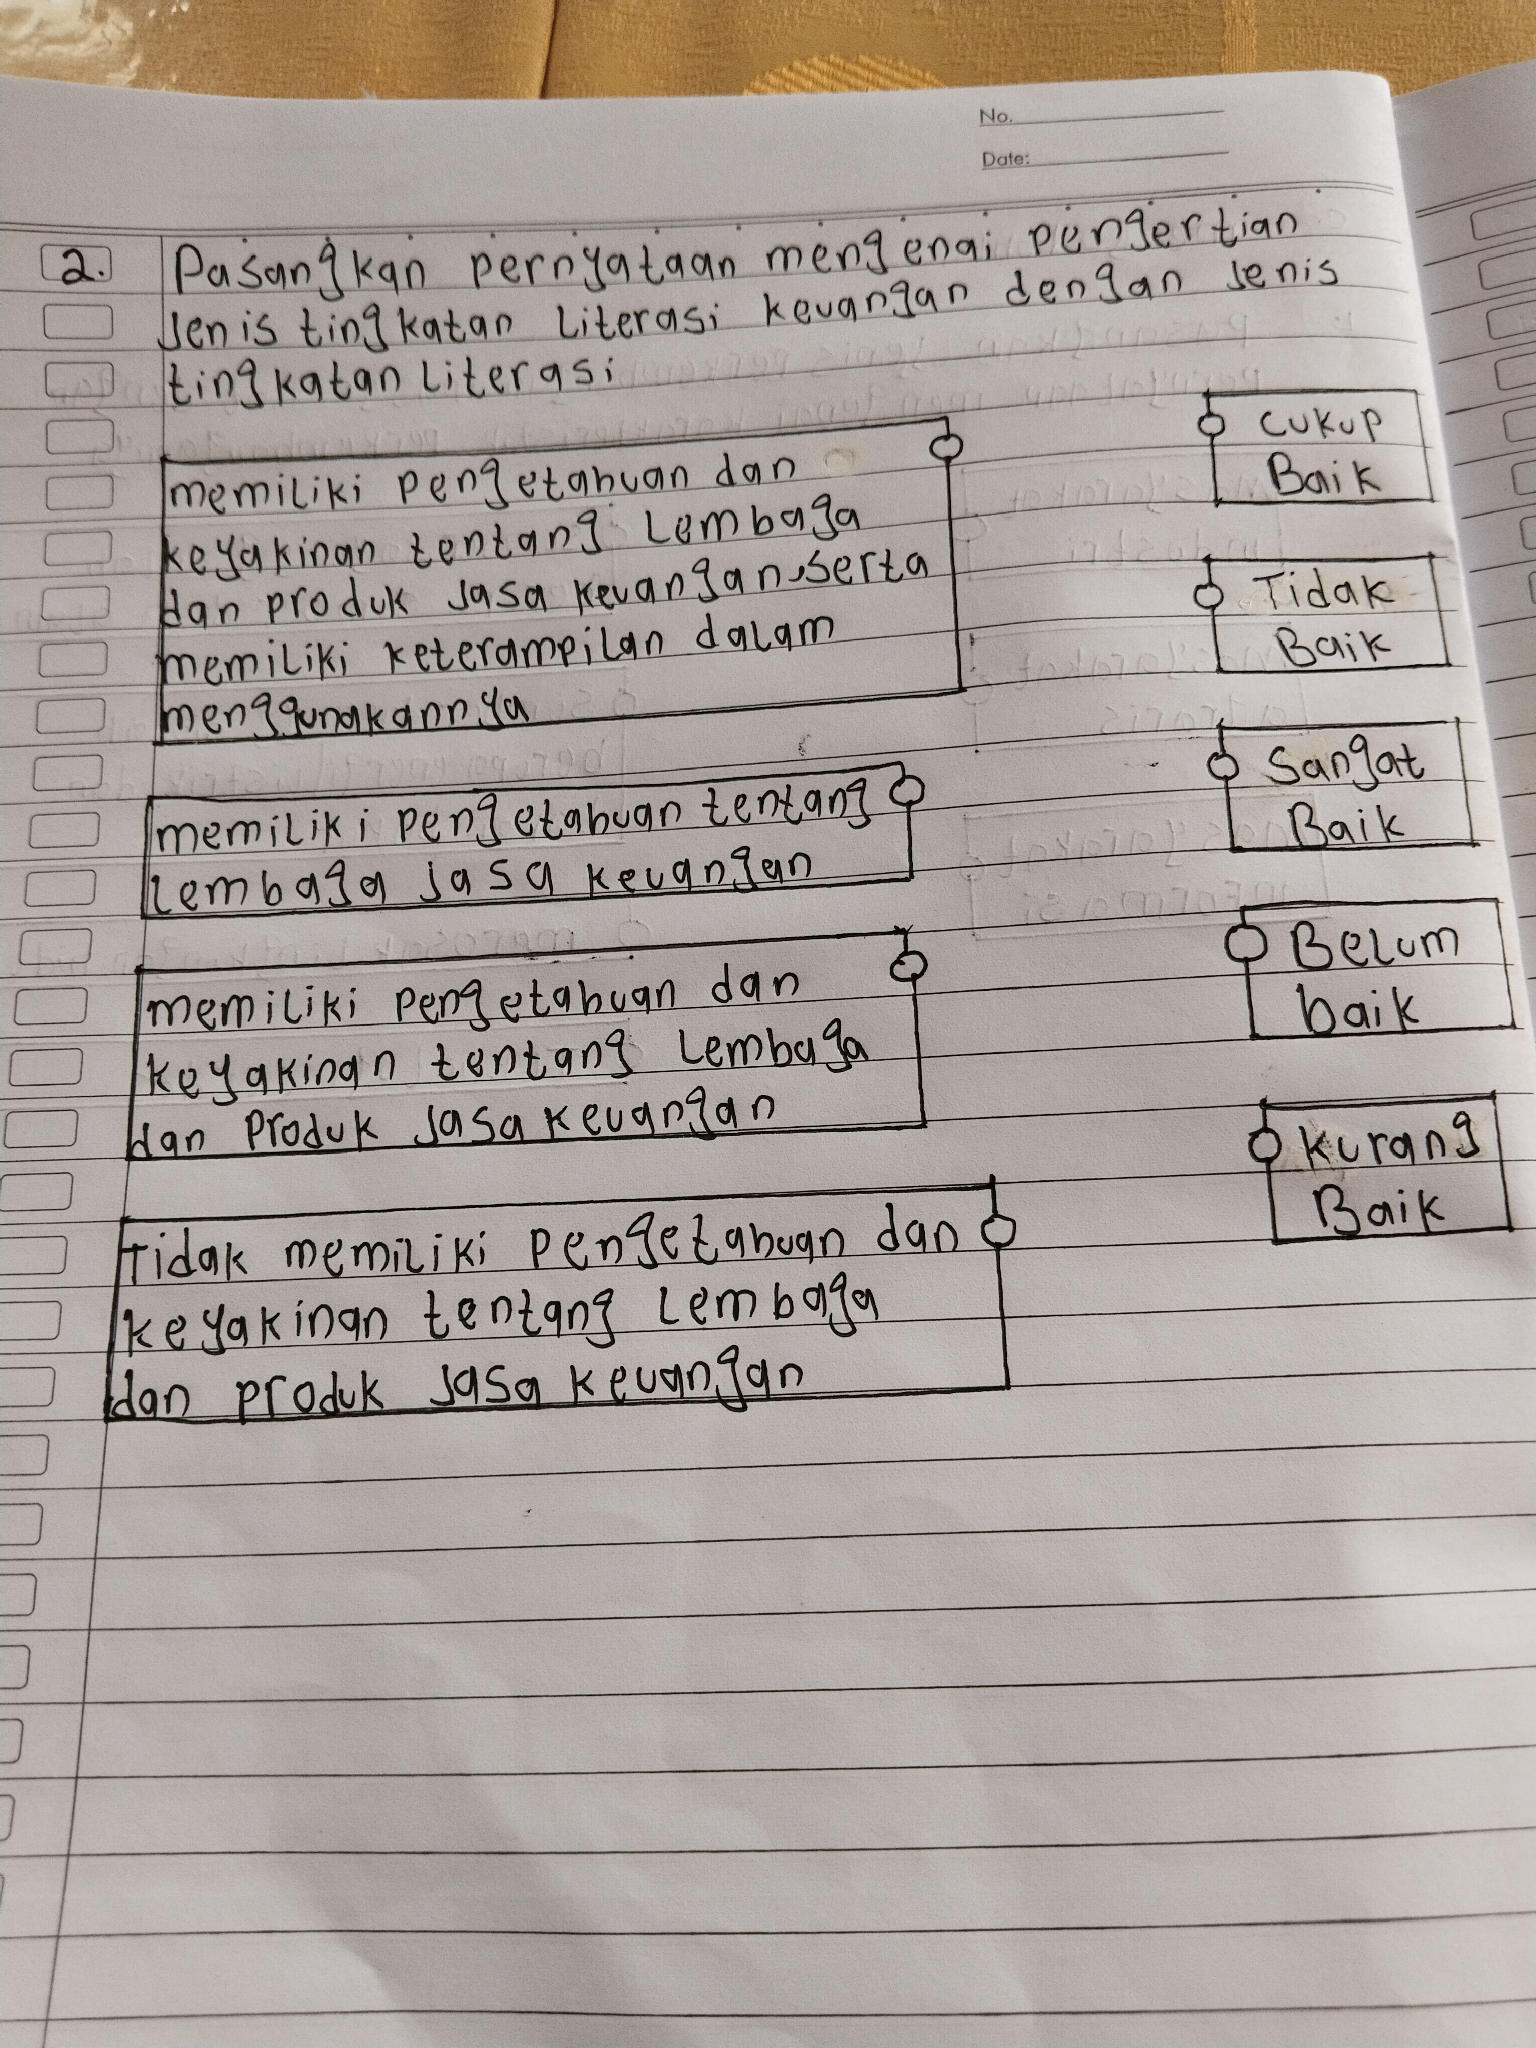 No.
Date:
2. Pasangkan pernyataan mengenai pengertian
Jenis tingkatan Literasi keuangan dengan Jenis
tingkatan Literasi
memiliki pengetahuan dan
keyakinan tentang Lembaga
dan produk Jasa keuangan, serta
memiliki keterampilan dalam
menggunakannya
memiliki pengetahuan tentang
Lembaga Jasa keuangan
memiliki pengetahuan dan
keyakinan tentang Lembaga
dan Produk Jasa keuangan
Tidak memiliki pengetahuan dan
keyakinan tentang Lembaga
dan produk Jasa keuangan
Cukup
Baik
Tidak
Baik
Sangat
Baik
Belum
baik
Kurang
Baik